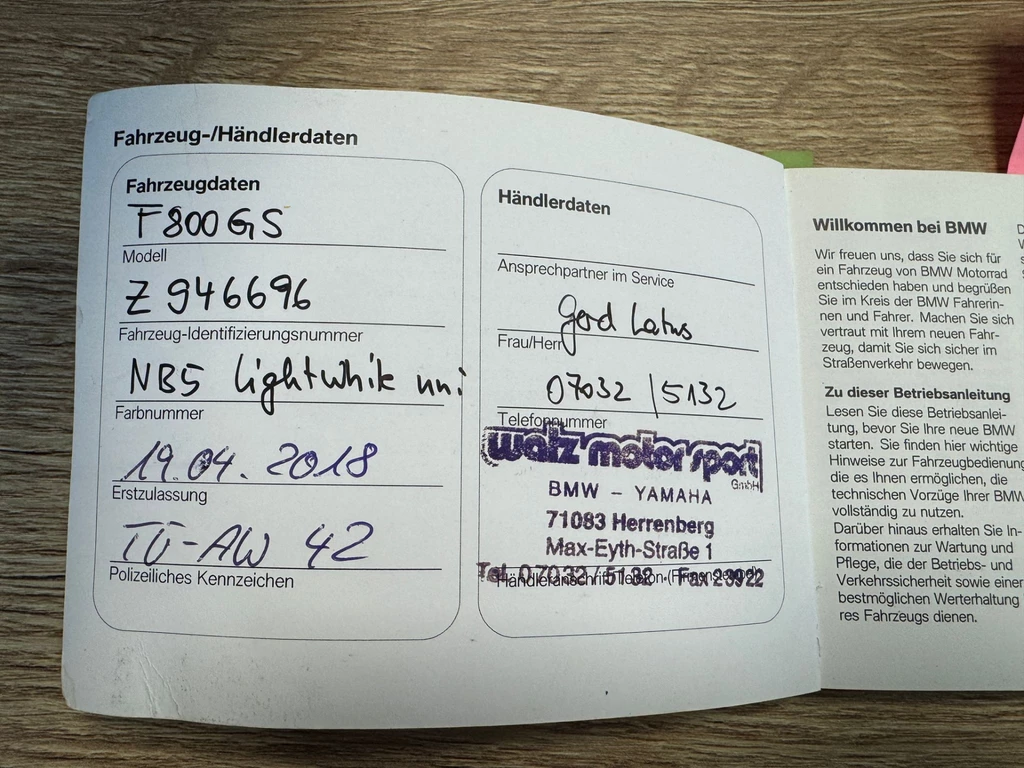 Fahrzeug-/Händlerdaten
Fahrzeugdaten
F800GS
Modell
Z946696
Fahrzeug-Identifizierungsnummer
NB5 Lightwhite uni
Farbnummer
19.04.2018
Erstzulassung
TÜ-AW 42
Polizeiliches Kennzeichen
Händlerdaten
Ansprechpartner im Service
Gerd Latus
Frau/Herr
07032 / 5132
Telefonnummer
walz motorsport
GmbH
BMW – YAMAHA
71083 Herrenberg
Max-Eyth-Straße 1
Tel. 07032 / 5132 · Fax 23922
Händleranschrift/Telefon
Willkommen bei BMW
Wir freuen uns, dass Sie sich für
ein Fahrzeug von BMW Motorrad
entschieden haben und begrüßen
Sie im Kreis der BMW Fahrerin-
nen und Fahrer. Machen Sie sich
vertraut mit Ihrem neuen Fahr-
zeug, damit Sie sich sicher im
Straßenverkehr bewegen.
Zu dieser Betriebsanleitung
Lesen Sie diese Betriebsanlei-
tung, bevor Sie Ihre neue BMW
starten. Sie finden hier wichtige
Hinweise zur Fahrzeugbedienung,
die es Ihnen ermöglichen, die
technischen Vorzüge Ihrer BMW
vollständig zu nutzen.
Darüber hinaus erhalten Sie In-
formationen zur Wartung und
Pflege, die der Betriebs- und
Verkehrssicherheit sowie einer
bestmöglichen Werterhaltung
res Fahrzeugs dienen.